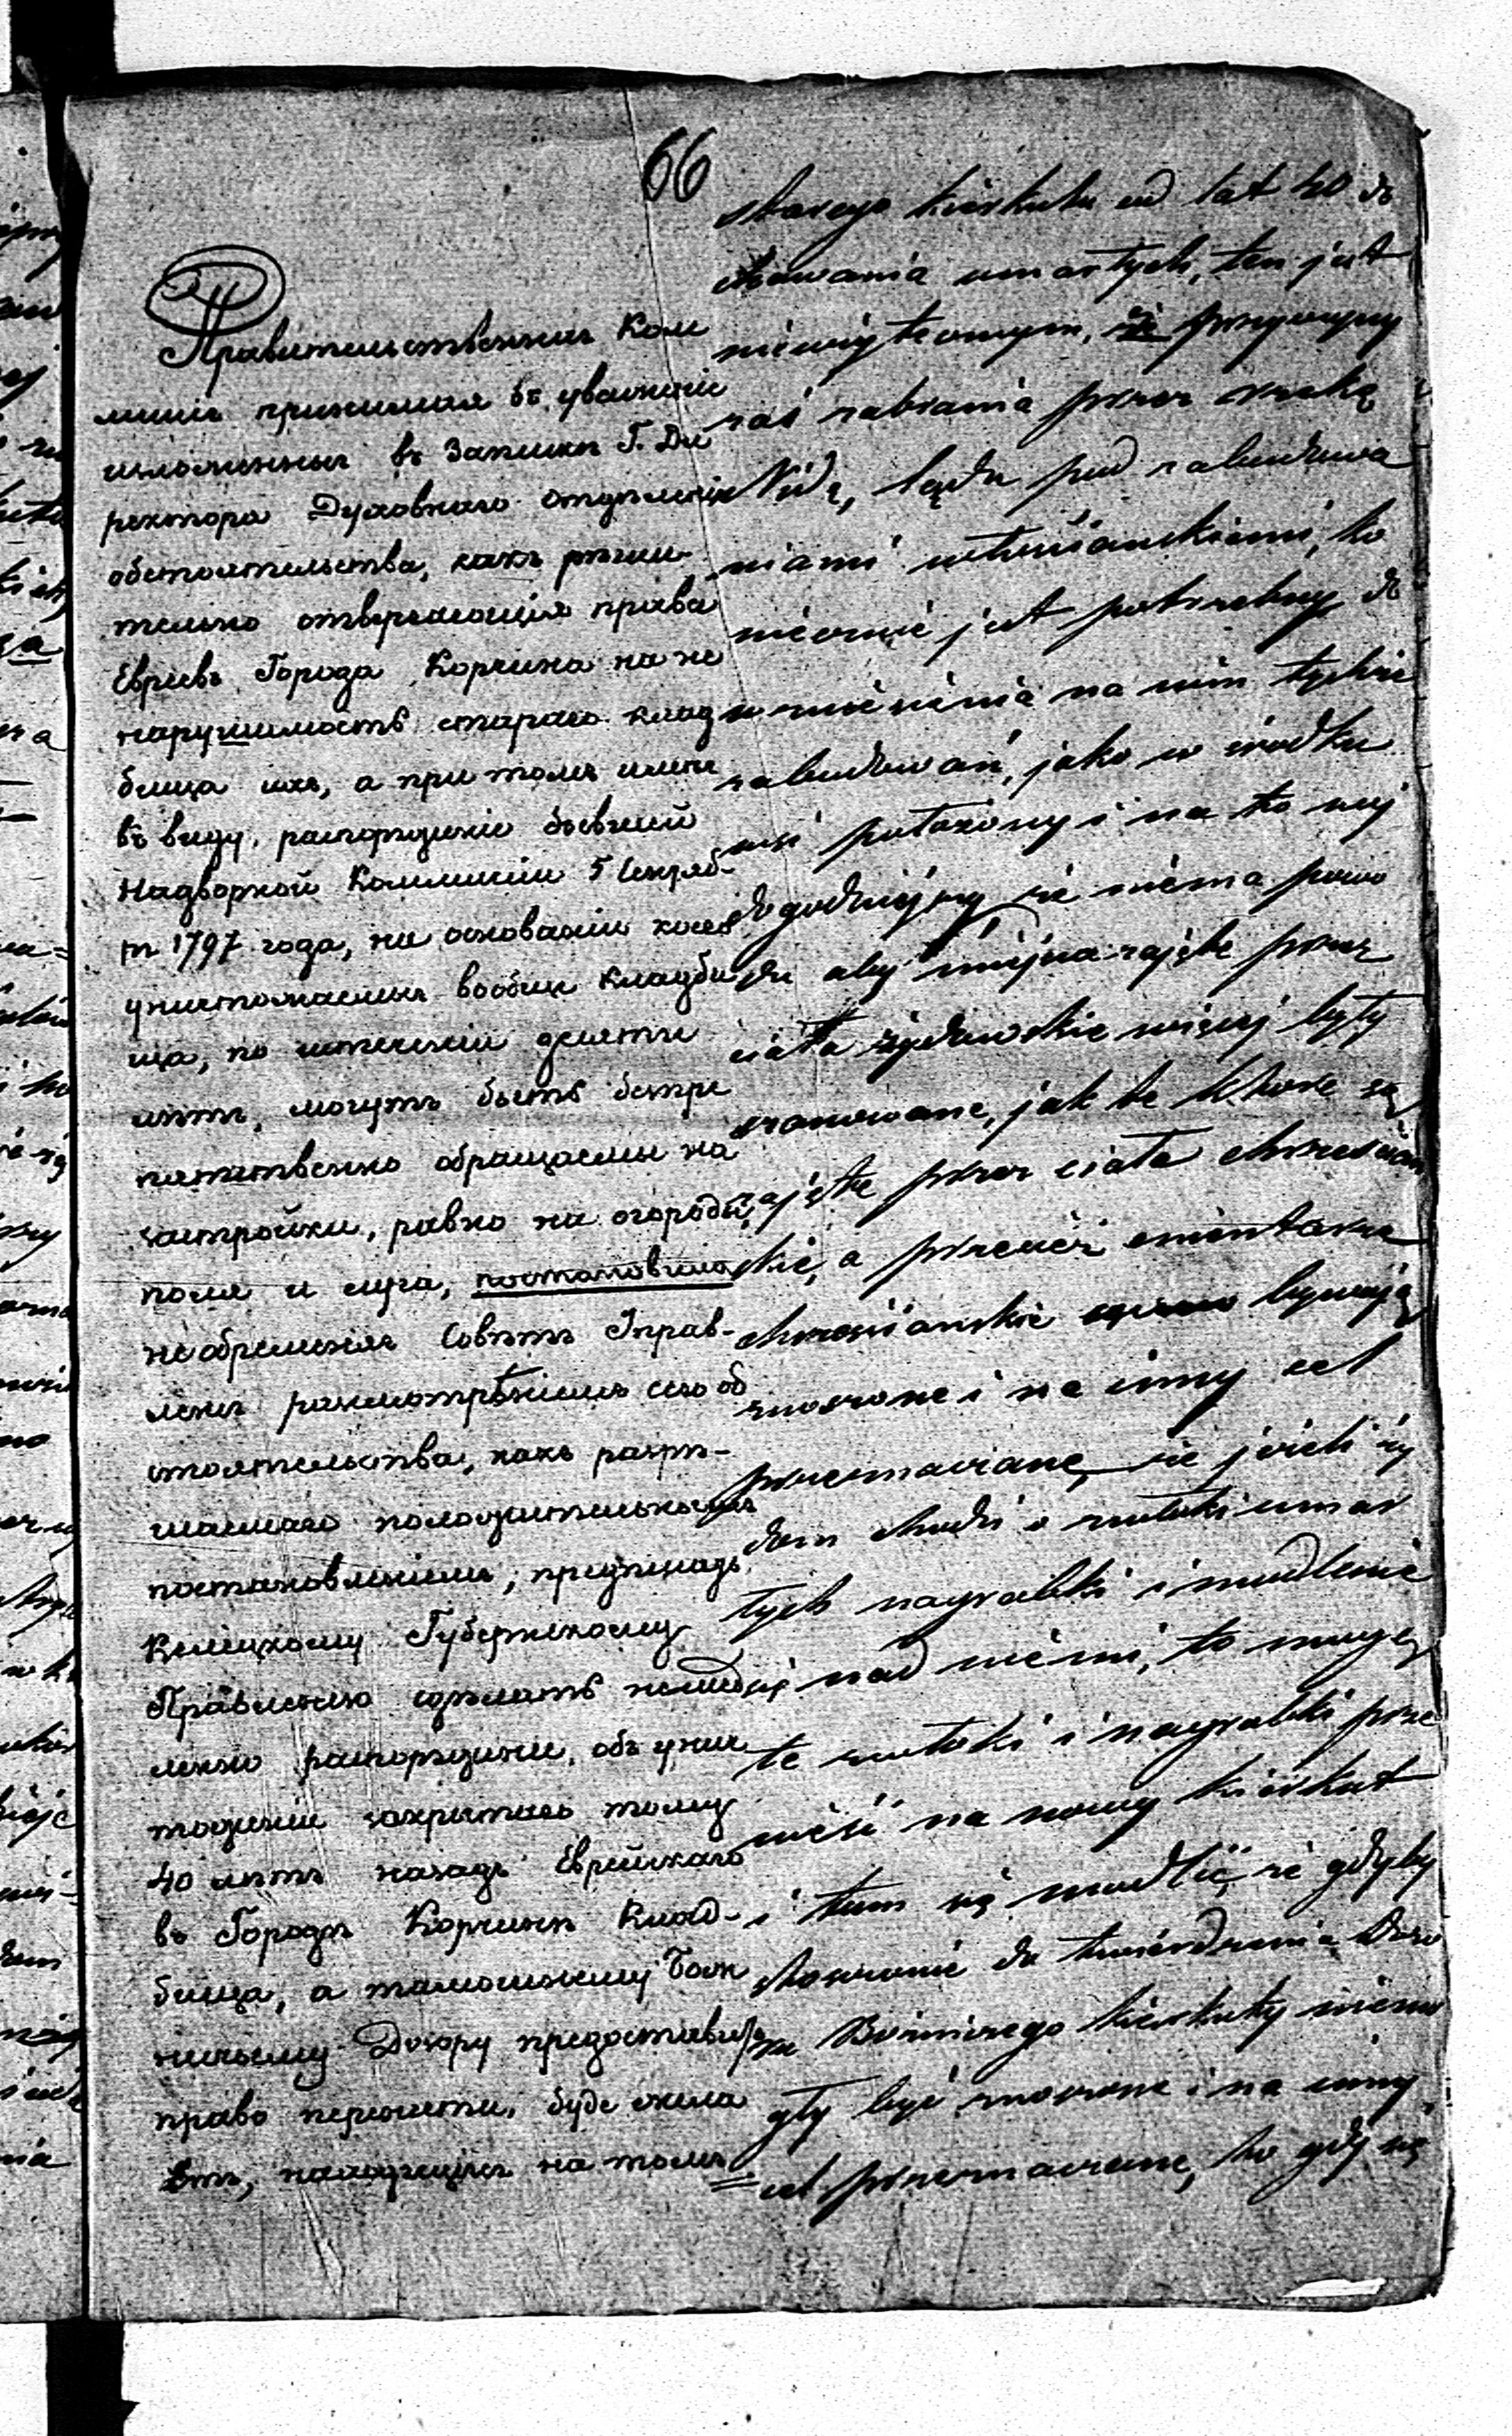 66
Правительственная Ком
мисія принимая въ уваженіе
изложенныя въ Запискѣ Г. Ди
ректора Духовнаго Отдѣленія
обстоятельства, какъ рѣши-
тельно отвергающія права
Евреевъ Города Корчина на не
нарушимость стараго клад
бища ихъ, а при томъ имѣя
въ виду, распоряженіе бывшей
Надворной Коммисіи 5 Сентяб-
ря 1797 года, на основаніи коего
уничтожаемыя вообще кладби
ща, по истеченіи десяти
лѣтъ, могутъ быть безпре
пятственно обращаемы на
застройки, равно на огороды,
поля и луга, постановила
не обременяя Совѣтъ Управ-
ленія разсмотрѣніемъ сего об
стоятельства, какъ разрѣ-
шаемаго положительнымъ
постановленіемъ, предписать
Келецкому Губернскому
Правленію сдѣлать немед
ленно распоряженіе, объ унич
тоженіи закрытаго тому
40 лѣтъ назадъ Еврейскаго
въ Городѣ Корчинѣ клад-
бища, а тамошнему Бож
ничьему Дозору предоставить
право перенести, буде жела
етъ, находящіяся на томъ
starego kierkutu od lat 40 do
chowania umarłych, ten jest
nieużytecznym, że przyczyny
zaś zabrania przez rzekę
Nidę, lądu pod zabudowa
niami włościańskiemi, ko
niecznie jest potrzebny do
umieszczenia na nim tychże
zabudowań, jako w środku
wsi położony i na to naj
dogodniejszy, że niema powo
du aby miejsca zajęte przez
ciała żydowskie więcej były
szanowane, jak te które są
zajęte przez ciała chrześciań
skie, a przecież cmentarze
chrześciańskie bywają
znoszone i na inny cel
przeznaczane, że jeżeli ży
dom chodzi o zwłoki umar
łych nagrobki i modlenie
się nad niemi, to mogą
te zwłoki i nagrobki prze
nieść na nowy kierkut
i tam się modlić, że gdyby
stosownie do twierdzenia Dozo
ru Bożniczego kierkuty niemo
gły być znoszone i na inny
cel przeznaczane, to gdy się